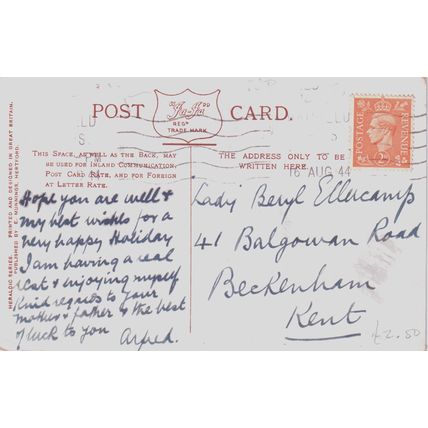 POST CARD.
"Ja-Ja"
REGD
TRADE MARK
THIS SPACE, AS WELL AS THE BACK, MAY
BE USED FOR INLAND COMMUNICATION,
POST CARD RATE, AND FOR FOREIGN
AT LETTER RATE.
THE ADDRESS ONLY TO BE
WRITTEN HERE.
16 AUG 44
POSTAGE
REVENUE
HERALDIC SERIES. PRINTED AND DESIGNED IN GREAT BRITAIN.
PUBLISHED BY E. MUNNINGS, HERTFORD.
Hope you are well &
my best wishes for a
very happy Holiday
I am having a real
rest & enjoying myself
Kind regards to your
mother & father & the best
of luck to you
Lady Beryl
41 Balgowan Road
Beckenham
Kent
£2.50